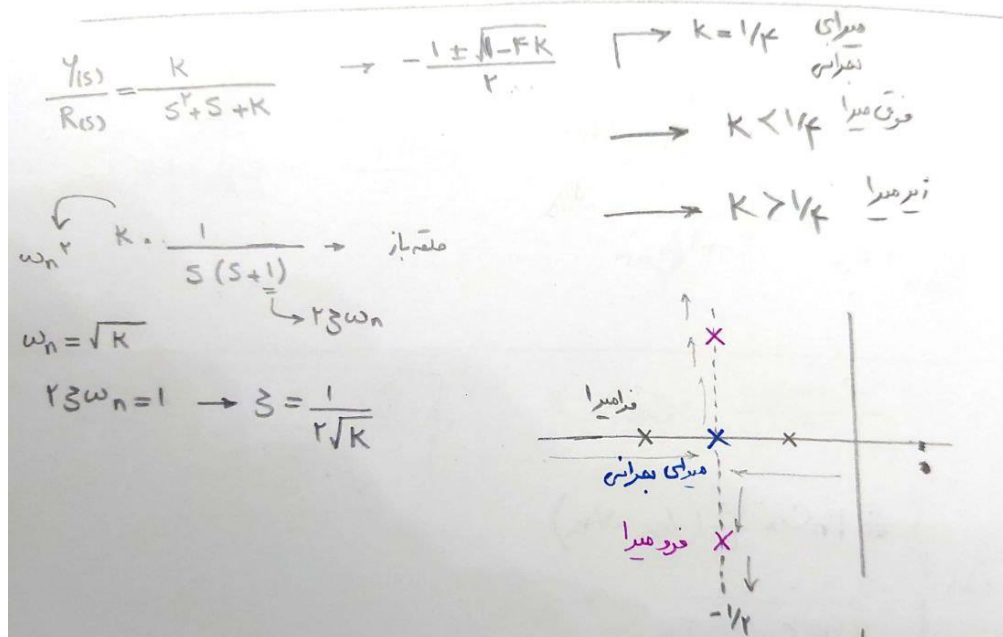 Y(s)/R(s) = K/(s^۲+s+K) → -(۱±√(۱-۴K))/۲ → K = ۱/۴ میرای بحرانی
→ K < ۱/۴ فوق میرا
→ K > ۱/۴ زیر میرا
ω_n^۲ K · ۱/(s(s+1)) → حلقه باز
→ ۲ζω_n
ω_n = √K
۲ζω_n = 1 → ζ = 1/(۲√K)
فرامیرا
میرای بحرانی
فرو میرا
-۱/۲